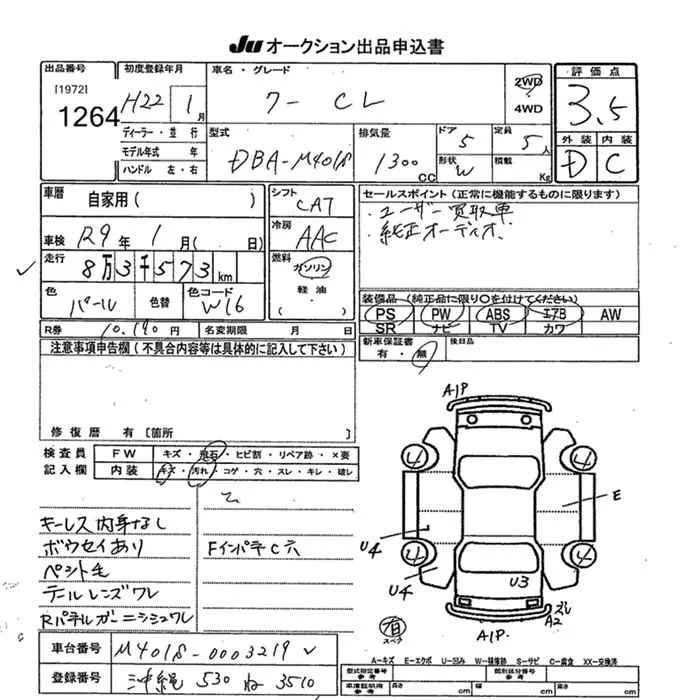 JU オークション出品申込書
出品番号 [1972] 1264
初度登録年月 H22 1月
ディーラー・並行
モデル年式 年
ハンドル 左・右
車名・グレード クー CL
2WD 4WD
評価点 3.5
外装 D 内装 C
型式 DBA-M401S
排気量 1300 CC
ドア 5
形状 W
定員 5人
積載 Kg
車歴 自家用( )
車検 R9年 1月( 日)
走行 8万3千573km
色 パール
色替
色コード W16
シフト CAT
冷房 AAC
燃料 ガソリン・軽油・( )
セールスポイント(正常に機能するものに限ります)
・ユーザー買取車
・純正オーディオ
装備品(純正品に限り○を付けてください)
PS PW ABS エアB AW
SR ナビ TV カワ
新車保証書 有・無
後日品
R券 10,190円
名変期限 月 日
注意事項申告欄(不具合内容等は具体的に記入して下さい)
修復歴 有〔箇所 〕
検査員記入欄
FW キズ・飛石・ヒビ割・リペア跡・×要
内装 キズ・汚れ・コゲ・穴・スレ・キレ・破レ
キーレス内身なし
ボウセイあり
テールレンズワレ
FインパネC穴
A1P
E
U4
U4
U3
A2
A1P.
A-キズ E-エクボ U-凹み W-補修跡 S-サビ C-腐食 XX-交換済
車台番号 M401S-0003219
登録番号 沖縄 530 ね 3510
型式指定番号 参考
類別区分番号 参考
車庫証明用 参考
長さ cm
幅 cm
高さ cm